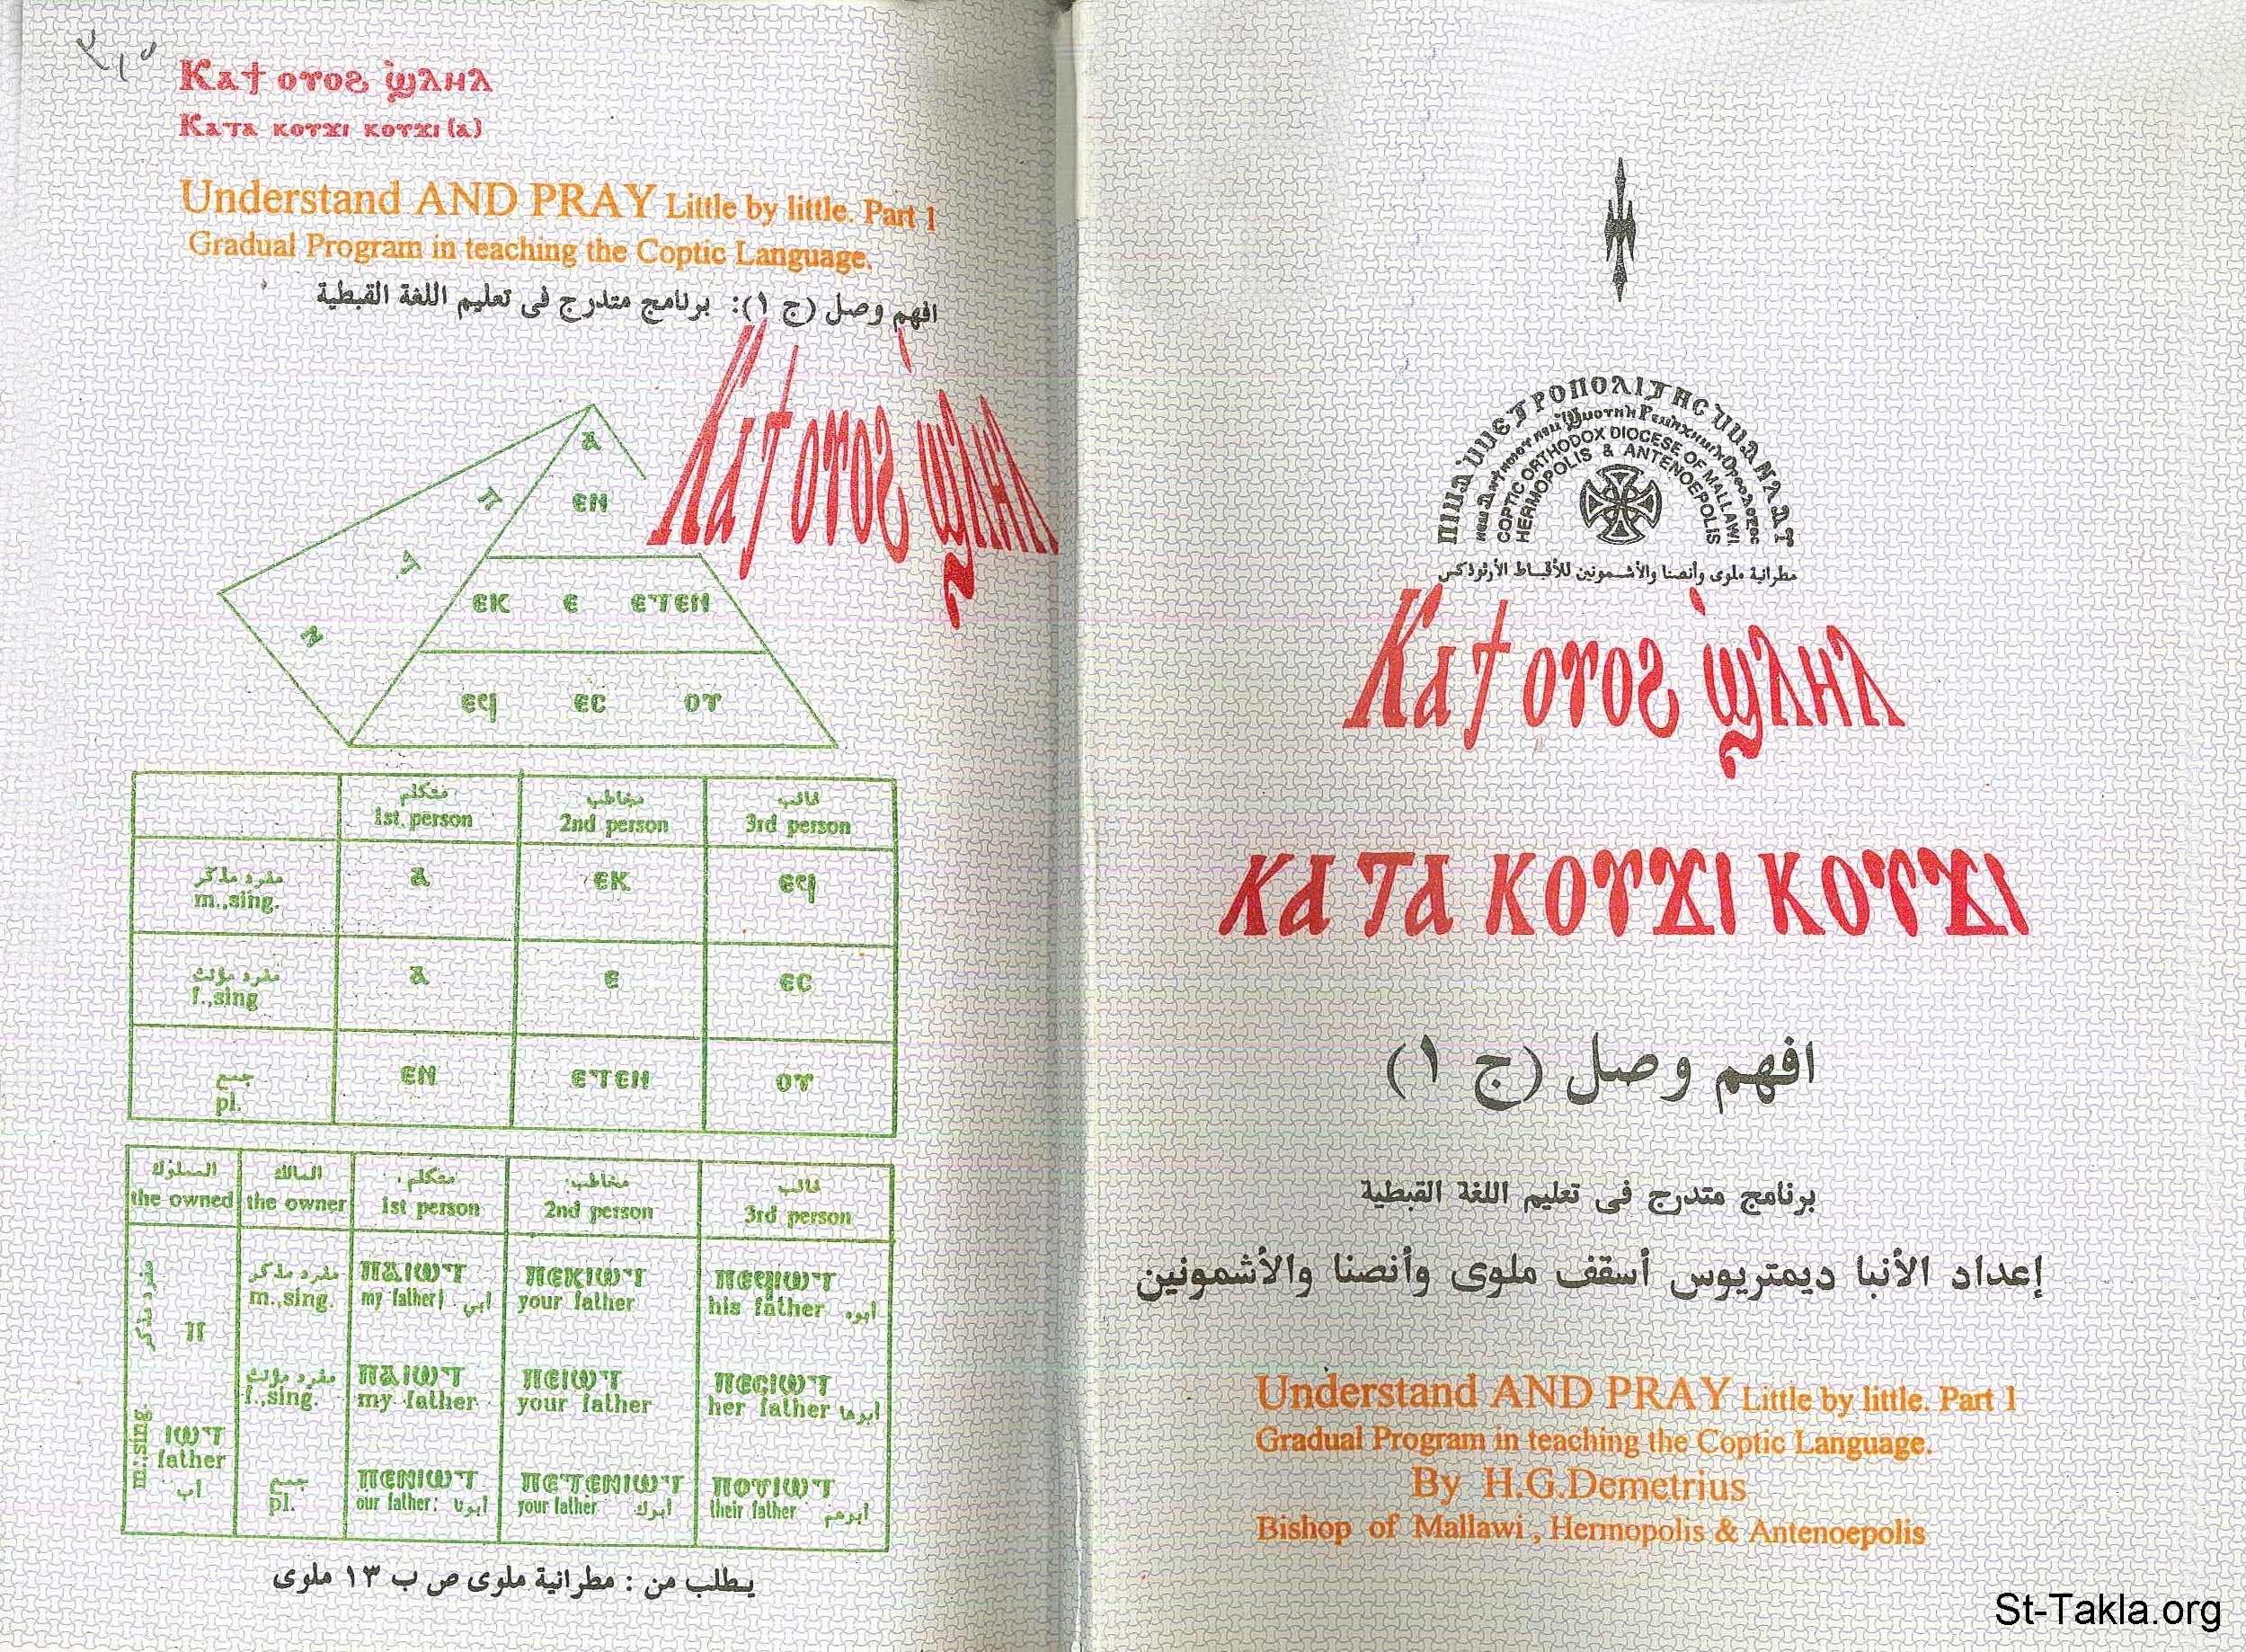 Ⲕⲁϯ ⲟⲩⲟϩ ϣ̀ⲗⲏⲗ
Ⲕⲁⲧⲁ ⲕⲟⲩϫⲓ ⲕⲟⲩϫⲓ (ⲁ)
Understand AND PRAY Little by little. Part 1
Gradual Program in teaching the Coptic Language.
افهم وصل (ج ١): برنامج متدرج فى تعليم اللغة القبطية
Ⲕⲁϯ ⲟⲩⲟϩ ϣ̀ⲗⲏⲗ
ⲁ
ⲡ ⲉⲛ
ⲧ
ⲉⲕ ⲉ ⲉⲧⲉⲛ
ⲛ
ⲉϥ ⲉⲥ ⲟⲩ
متكلم مخاطب غائب
1st. person 2nd person 3rd person
مفرد مذكر ⲁ ⲉⲕ ⲉϥ
m.,sing.
مفرد مؤنث ⲁ ⲉ ⲉⲥ
f.,sing
جمع ⲉⲛ ⲉⲧⲉⲛ ⲟⲩ
pl.
المملوك المالك متكلم مخاطب غائب
the owned the owner 1st person 2nd person 3rd person
مفرد مذكر ⲡⲁⲓⲱⲧ ⲡⲉⲕⲓⲱⲧ ⲡⲉϥⲓⲱⲧ
m.,sing. my father ابي your father his father ابوه
مفرد مذكر
ⲡ
مفرد مؤنث ⲡⲁⲓⲱⲧ ⲡⲉⲓⲱⲧ ⲡⲉⲥⲓⲱⲧ
f.,sing. my father your father her father ابوها
m.,sing.
ⲓⲱⲧ
father
اب
جمع ⲡⲉⲛⲓⲱⲧ ⲡⲉⲧⲉⲛⲓⲱⲧ ⲡⲟⲩⲓⲱⲧ
pl. our father: ابونا your father ابوك their father ابوهم
يطلب من : مطرانية ملوى ص ب ١٣ ملوى
COPTIC ORTHODOX DIOCESE OF MALLAWI
HERMOPOLIS & ANTENOEPOLIS
مطرانية ملوى وأنصنا والأشمونين للأقباط الأرثوذكس
Ⲕⲁϯ ⲟⲩⲟϩ ϣ̀ⲗⲏⲗ
ⲕⲁⲧⲁ ⲕⲟⲩϫⲓ ⲕⲟⲩϫⲓ
افهم وصل (ج ١)
برنامج متدرج فى تعليم اللغة القبطية
إعداد الأنبا ديمتريوس أسقف ملوى وأنصنا والأشمونين
Understand AND PRAY Little by little. Part 1
Gradual Program in teaching the Coptic Language.
By H.G.Demetrius
Bishop of Mallawi , Hermopolis & Antenoepolis
St-Takla.org